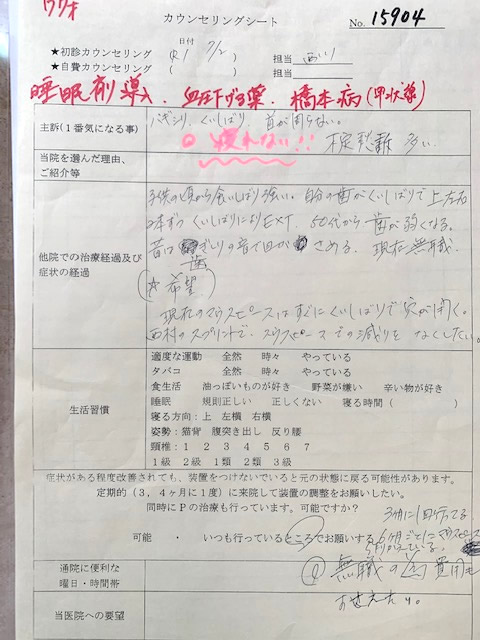 カウンセリングシート
No. 15904
日付
★初診カウンセリング ( 7/2 ) 担当
★自費カウンセリング ( ) 担当
睡眠剤導入、血圧下げる薬、橋本病(甲状腺)
主訴(1番気になる事)
バギシリ、くいしばり、首が回らない。
疲れない!! 多い
当院を選んだ理由、
ご紹介等
他院での治療経過及び
症状の経過
子供の頃から食いしばり強い。自分の歯がくいしばりで上左右
2本ずつくいしばりになりEXT. 50代から歯が弱くなる。
昔は歯ぎしりの音で目がさめる。現在無職。
(☆希望)
現在のマウスピースはすぐにくいしばりで穴が開く。
西村のスプリントで、マウスピースでの減りをなくしたい。
生活習慣
適度な運動 全然 時々 やっている
タバコ 全然 時々 やっている
食生活 油っぽいものが好き 野菜が嫌い 辛い物が好き
睡眠 規則正しい 正しくない 寝る時間( )
寝る方向:上 左横 右横
姿勢:猫背 腹突き出し 反り腰
頸椎:1 2 3 4 5 6 7
1級 2級 1類 2類 3級
症状がある程度改善されても、装置をつけないでいると元の状態に戻る可能性があります。
定期的(3,4ヶ月に1度)に来院して装置の調整をお願いしたい。
同時にPの治療も行っています。可能ですか?
3ヶ月に1回行ってる
可能 ・ いつも行っているところでお願いする
6ヶ月ごとにマウスピース
通院に便利な
曜日・時間帯
無職の為費用を
おさえたい。
当医院への要望